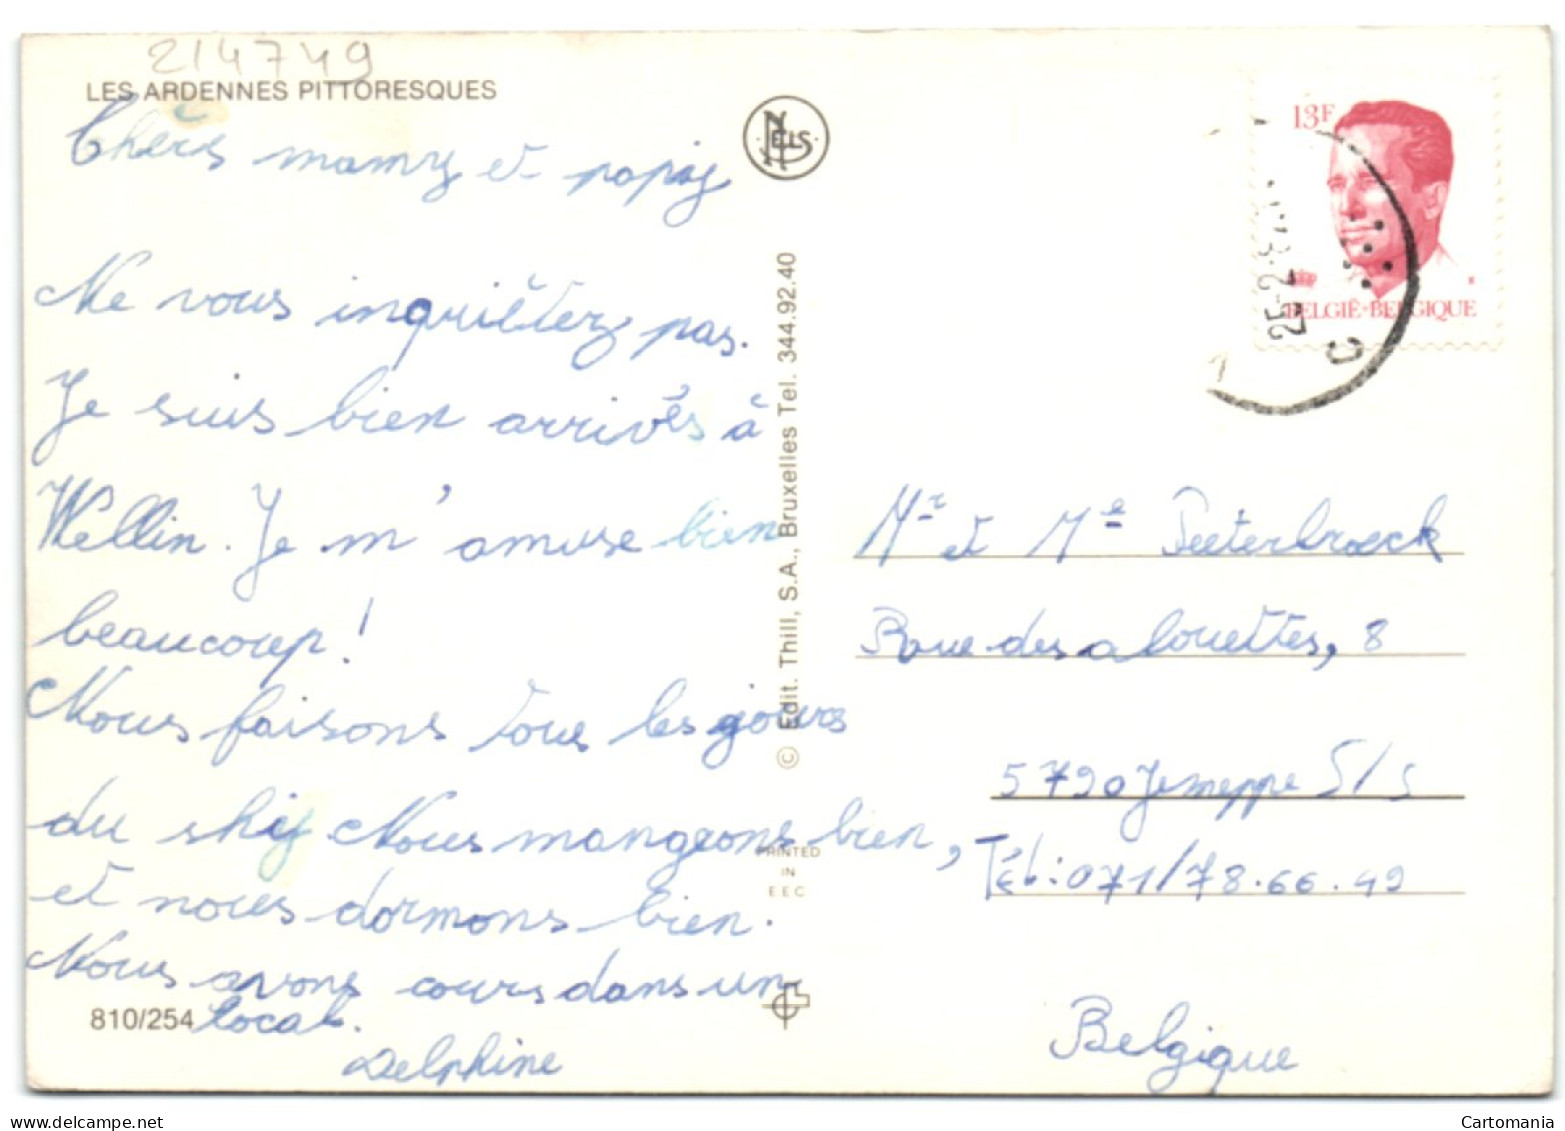 214749
LES ARDENNES PITTORESQUES
Chèrs mamy et papiy
Ne vous inquiètez pas.
Je suis bien arrivés à
Wellin. Je m'amuse bien
beaucoup!
Nous faisons tous les jours
du skiy Nous mangeons bien,
et nous dormons bien.
Nous avons cours dans un
810/254 local.
Delphine
NELS
© Edit. Thill, S.A., Bruxelles Tel. 344.92.40
PRINTED
IN
EEC
13F
BELGIË-BELGIQUE
25-2-87
C
Mr et Me Peeterbroeck
Rue des alouettes, 8
5790 Jemeppe S/S
Tél: 071/78.66.49
Belgique
Cartomania